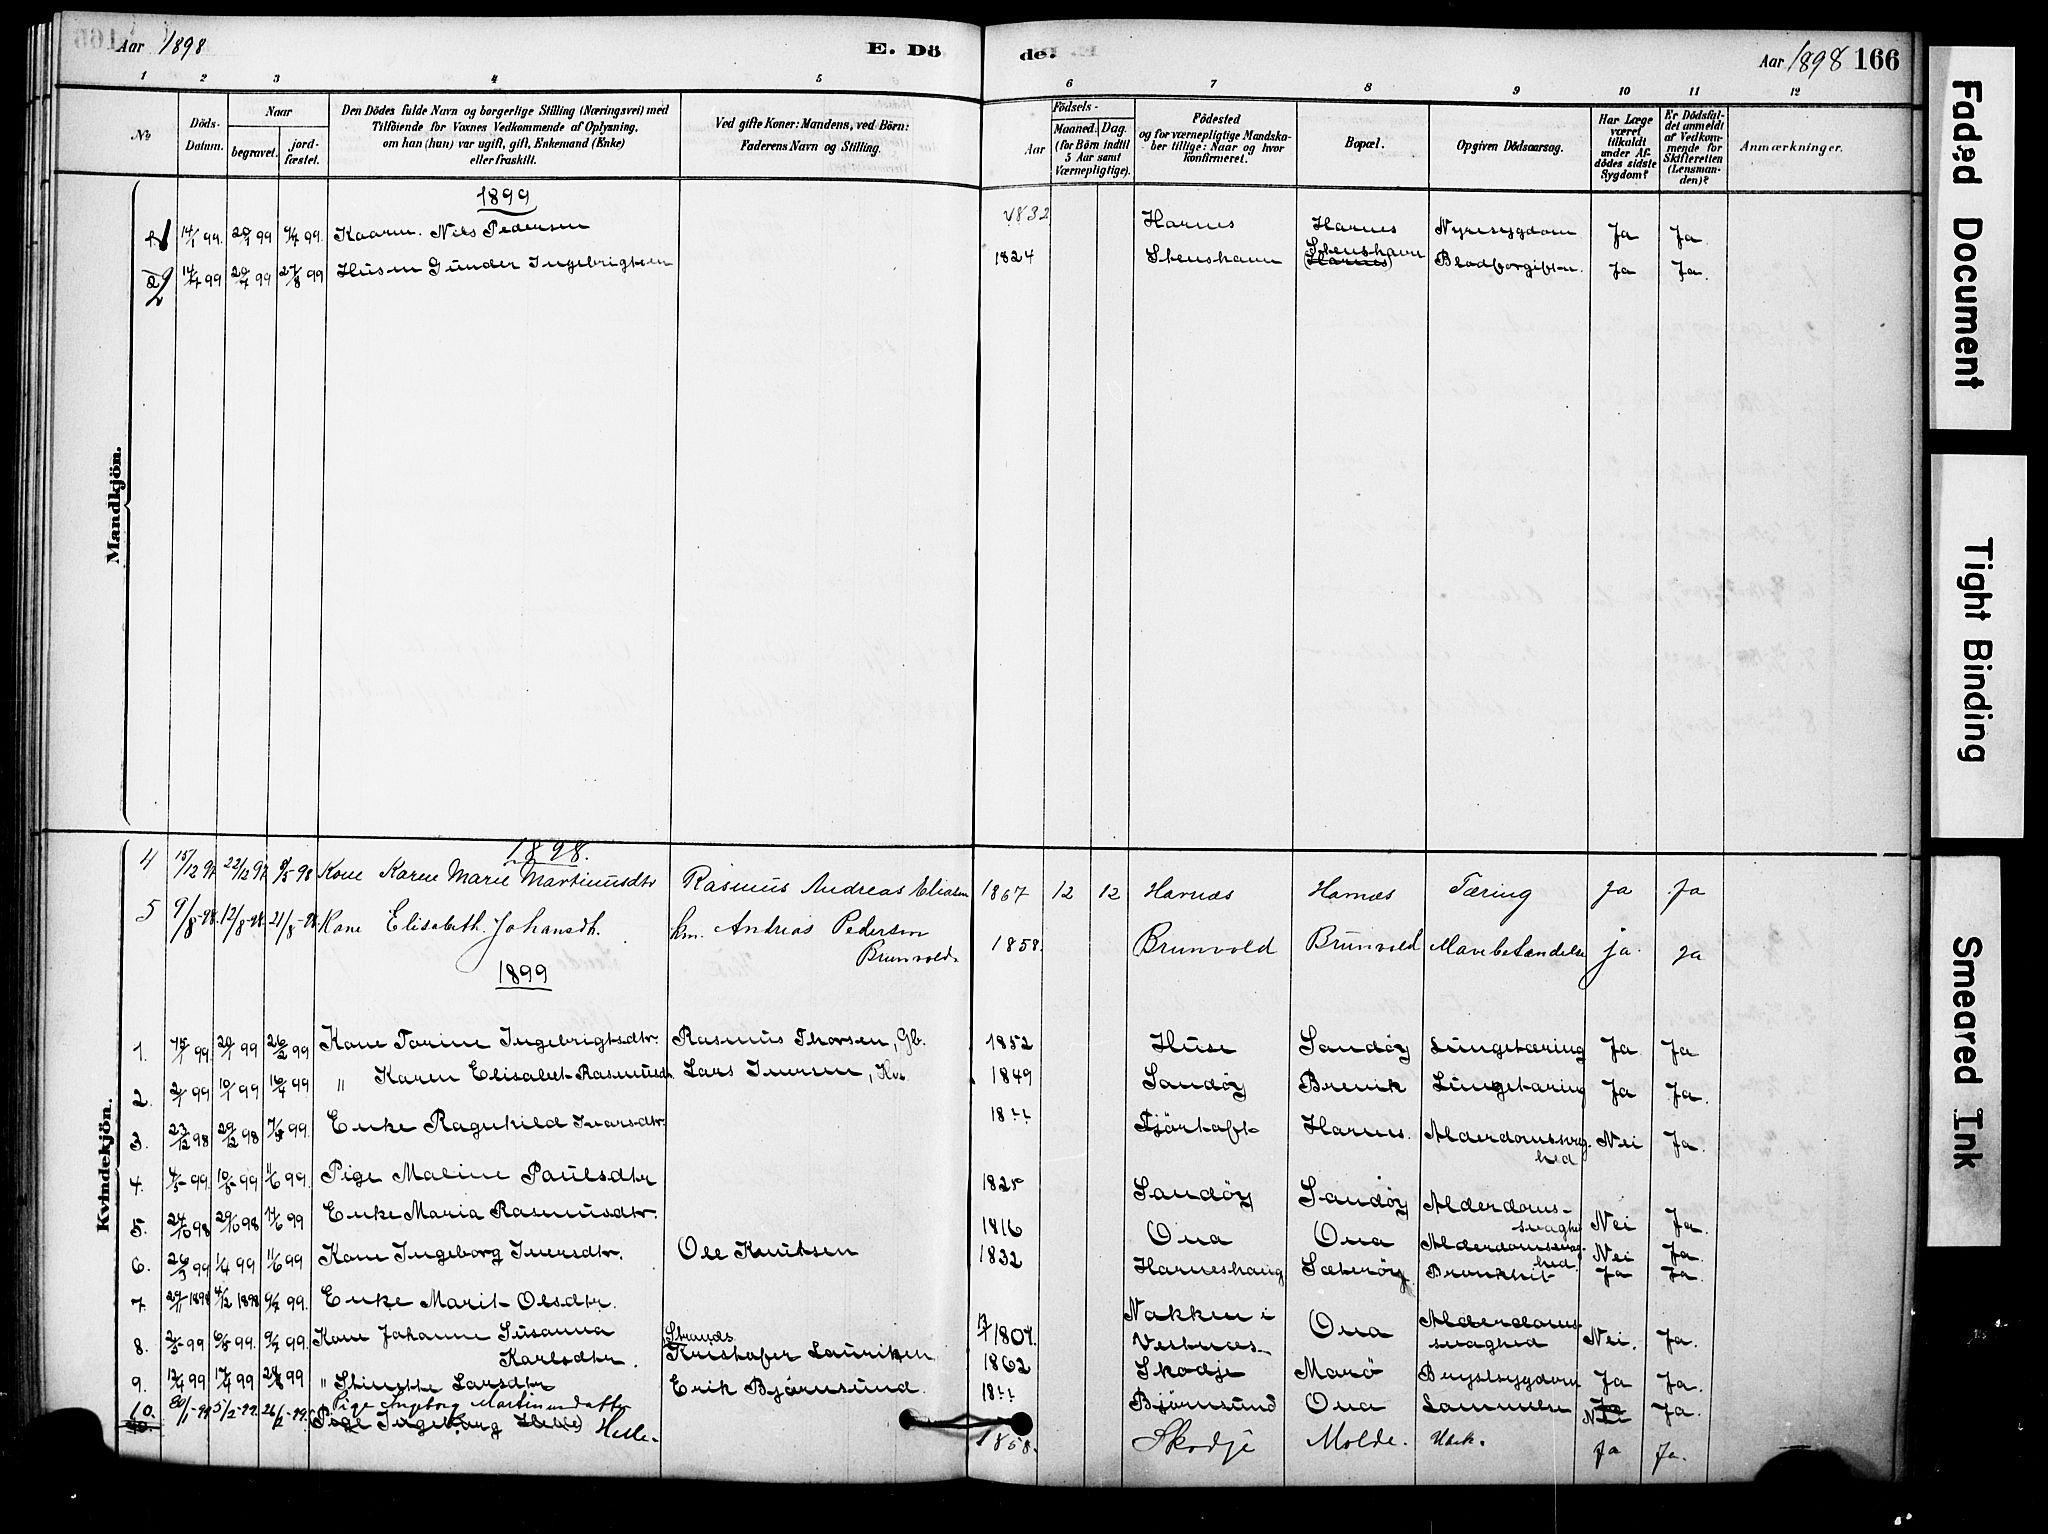 Aar 1898
E. Dö
de.
Aar 1898 166
1 2 3 4 5 6 7 8 9 10 11 12
No
Döds-Datum.
Naar
begravet.
jordfæstet.
Den Dödes fulde Navn og borgerlige Stilling (Næringsvei) med
Tilföiende for Voxnes Vedkommende af Oplysning,
om han (hun) var ugift, gift, Enkemand (Enke)
eller fraskilt.
Ved gifte Koner: Mandens, ved Börn:
Faderens Navn og Stilling.
Födsels-
Aar
Maaned. Dag.
(for Börn indtil
5 Aar samt
Værnepligtige).
Födested
og for værnepligtige Mandska-
ber tillige: Naar og hvor
konfirmeret.
Bopæl.
Opgiven Dödsaarsag.
Har Læge
været
tilkaldt
under Af-
dödes sidste
Sygdom?
Er Dödsfal-
det anmeldt
af Vedkom-
mende for
Skifteretten
(Lensman-
den)?
Anmærkninger.
Mandkjön.
1899
1 14/1 99. 20/1 99 9/4 99. Kaarm. Nils Pedersen 1832 Harnes Harnes Nyresygdom Ja Ja.
2 14/7 99 20/7 99 27/8 99 Husm Gunder Ingebrigtsen 1824 Stenshavn Stenshavn (Harnes) Blodforgiftn. Ja Ja.
Kvindekjön.
1898.
4 15/12 97. 22/12 97. 8/5 98 Kone Karen Marie Martinusdtr Rasmus Andreas Eliasen 1867 12 12 Harnæs Harnæs Tæring Ja Ja
5 9/8-98. 12/8-98. 21/8-98 Kone Elisabeth Johansdtr. km. Andreas Pedersen Brunvold. 1858. Brunvold Brunvold Mavebetændelse ja. ja
1899
1. 15/1 99. 20/1 99 26/2 99 Kone Torine Ingebrigtsdtr. Rasmus Thorsen, Gb. 1852 Huse Sandøy Lungetæring Ja Ja
2. 2/1 99 10/1 99 16/4 99 " Karen Elisabet Rasmusdtr. Lars Iversen, 1849 Sandøy Brevik Lungetæring Ja Ja.
3. 23/12 98 29/12 98 99. Enke Ragnhild Ivarsdtr. 18-- Fjørtoft Harnes. Alderdomssvaghed Nei Ja.
4. 4/5 99. 10/5 99 11/6 99. Pige Maline Paulsdtr 1825 Sandøy Sandøy Alderdomssvaghed Nei Ja.
5. 98 98 11/6 99 Enke Maria Rasmusdtr. 1816 Ona Ona Alderdomssvaghed. Nei Ja.
6. 26/3 99 1/4 99 11/6 99 Kone Ingeborg Iversdtr. Ole Knutsen 1832 Harneshaug Sæterøy Bronkhit Ja Ja.
7. 29/11 1898 4/12 1898 9/7 99. Enke Marit Olsdtr. 1807. Nakken i Vestnes Ona Alderdomssvaghed Nei. Ja.
8. 2/5 99 6/5 99. 9/7 99. Kone Johanne Susanna Karlsdtr. Strands. Kristofer Lauritsen 1862 Skodje Marø Brystsygdom Ja Ja.
9. 12/4 99 17/4 99 99 " Stinette Larsdtr Erik Bjørnsund. 18-- Bjørnsund Ona Lammelse Nei Ja.
10. 30/1-99. 5/2-99. 26/2-99. Pige Ingeborg Martinusdatter Pige Ingeborg Helle. 1858. Skodje Molde. Ubek. Ja Ja.
Faded Document
Tight Binding
Smeared Ink